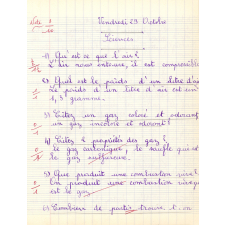 Vendredi 29 Octobre
Sciences
1) Qu'est ce que l'air ?
L'air nous entoure, il est compressible
2) Quel est le poids d'un litre d'air
Le poids d'un litre d'air est
1,3 gramme.
3) Citez un gaz coloré et odorant
un gaz incolore et odorant ?
4) Citez 2 propriétés des gaz ?
le gaz carbonique, le souffle qui
le gaz sulfureux.
5) Que produit une combustion
On produit une combustion
est le gaz
6) Combien de